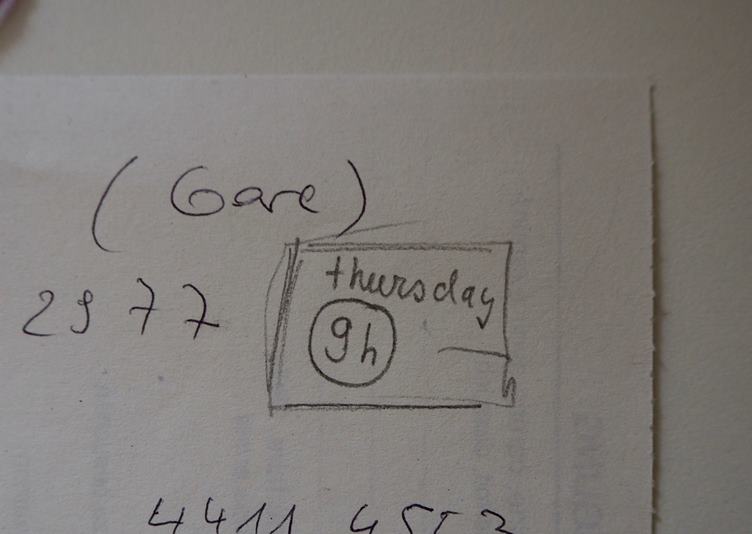 (Gare)
2977
thursday
9h